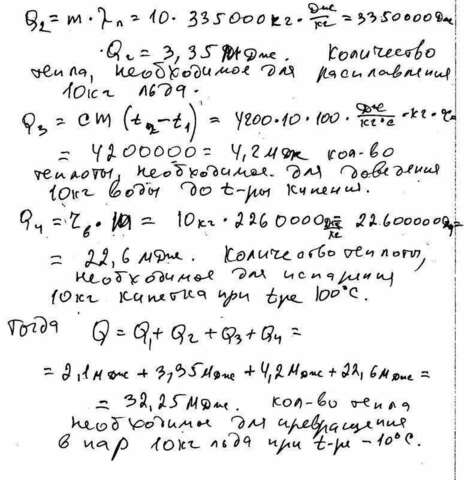 Q₂ = m · λл = 10 · 335000 кг · Дж/кг = 3350000 Дж
Q₂ = 3,35 МДж. Количество
тепла, необходимое для расплавления
10кг льда.
Q₃ = cm (t₂ – t₁) = 4200·10·100 · Дж/кг°С · кг · °С
= 4200000 = 4,2 МДж кол-во
теплоты, необходимое для доведения
10кг воды до t-ры кипения.
Q₄ = · m = 10кг · 2260000 Дж/кг 22600000 Дж =
= 22,6 МДж. Количество теплоты,
необходимое для испарения
10кг кипятка при t-ре 100°С.
Тогда Q = Q₁ + Q₂ + Q₃ + Q₄ =
= 2,1 МДж + 3,35 МДж + 4,2 МДж + 22,6 МДж =
= 32,25 МДж. кол-во тепла
необходимое для превращения
в пар 10кг льда при t-ре –10°С.